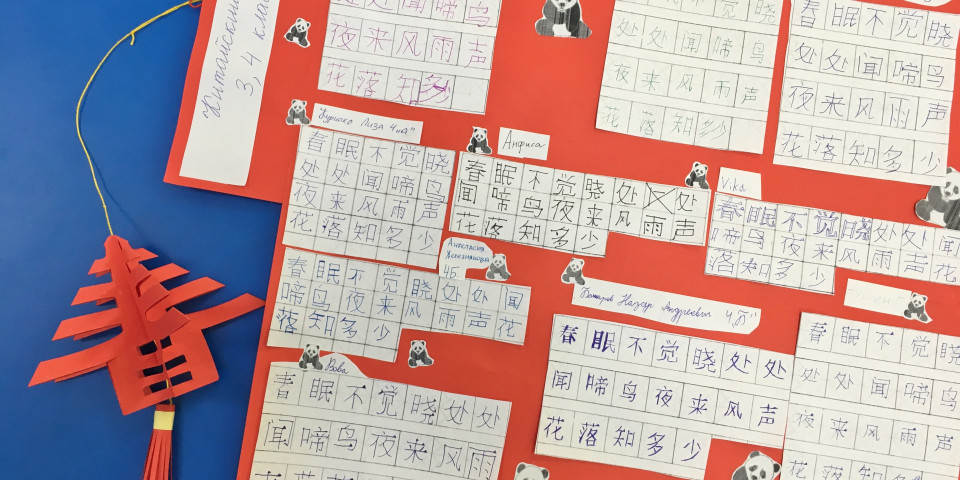 Китайский
3, 4 кла
处处闻啼鸟
夜来风雨声
花落知多
春眠不觉晓
处处闻啼鸟
夜来风雨声
花落知多少
春眠不觉晓
处处闻啼鸟
夜来风雨声
花落知多少
Лиза 4"а"
春眠不觉晓
处处闻啼鸟
夜来风雨声
花落知多少
Анфиса
春眠不觉晓处处
闻啼鸟夜来风雨声
花落知多少
Vika
春眠不觉晓处处闻
啼鸟夜来风雨声花
落知多少
Анастасия
Железнякова
4Б
春眠不觉晓处处闻
啼鸟夜来风雨声花
落知多少
Назар Андреевич 4"Б"
春眠不觉晓处处
闻啼鸟夜来风声
花落知多少
Вова
春眠不觉晓处处
闻啼鸟夜来风雨
春眠不觉晓
处处闻啼鸟
夜来风雨声
花落知多少